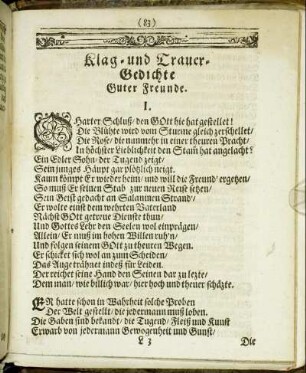 ( 83 )
Klag- und Trauer-
Gedichte
Guter Freunde.
I.
OHarter Schluß/ den GOtt hie hat gestellet!
Die Blühte wird vom Sturme gleich zerschellet/
Die Rose/ die nunmehr in einer theuren Pracht/
In höchster Lieblichkeit den Stam̃ hat angelacht!
Ein Edler Sohn/ der Tugend zeigt/
Sein junges Häupt gar plötzlich neigt.
Kaum kömpt Er wieder heim/ und will die Freund/ ergetzen/
So muß Er seinen Stab zur neuen Reise setzen/
Sein Geist gedacht an Salaminen Strand/
Er wolte einst dem wehrten Vaterland
Nächst GOtt getreue Dienste thun/
Und Gottes Lehr den Seelen wol einprägen/
Allein/ Er muß in hohen Willen ruh'n
Und folgen seinem GOtt zu theuren Wegen.
Er schicket sich wol an zum Scheiden/
Das Auge trähnet indeß für Leiden.
Der reichet seine Hand den Seinen dar zu letzte/
Dem man/ wie billich war/ hier hoch und theuer schäzte.
ER hatte schon in Wahrheit solche Proben
Der Welt gestellt/ die jedermann muß loben.
Die Gaben sind bekandt/ die Tugend/ Fleiß und Kunst
Erwarb von jedermann Gewogenheit und Gunst/
L 3
Die